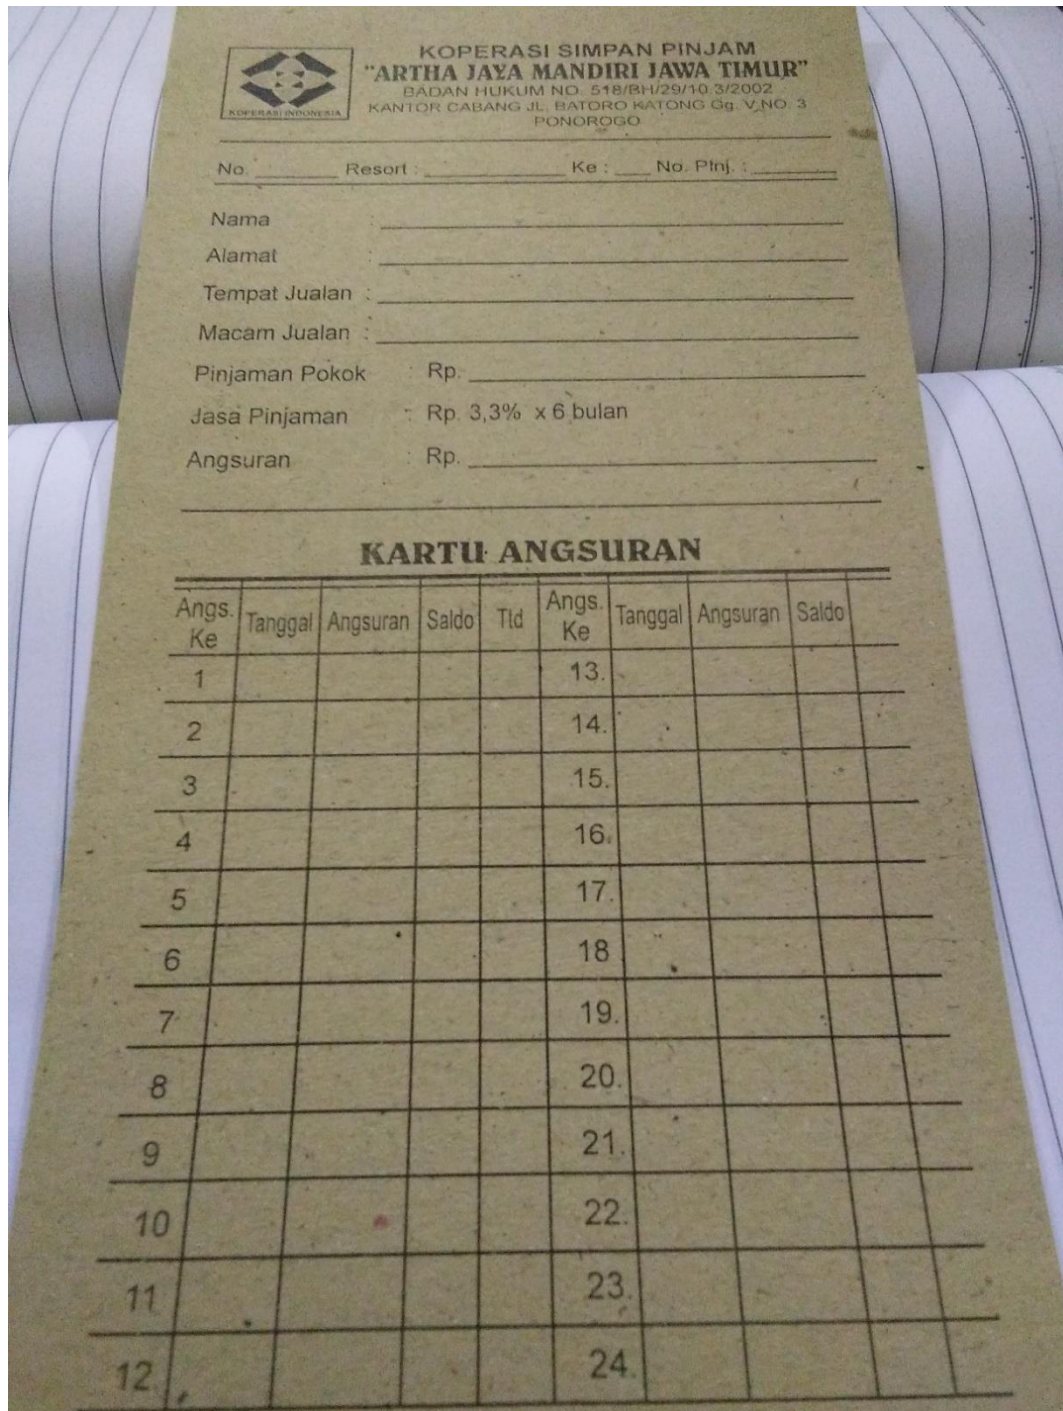 KOPERASI INDONESIA
KOPERASI SIMPAN PINJAM
"ARTHA JAYA MANDIRI JAWA TIMUR"
BADAN HUKUM NO. 518/BH/29/10.3/2002
KANTOR CABANG JL. BATORO KATONG Gg. V NO. 3
PONOROGO
No. Resort : Ke : No. PInj. :
Nama :
Alamat :
Tempat Jualan :
Macam Jualan :
Pinjaman Pokok : Rp.
Jasa Pinjaman : Rp. 3,3% x 6 bulan
Angsuran : Rp.
KARTU ANGSURAN
Angs. Ke Tanggal Angsuran Saldo Ttd Angs. Ke Tanggal Angsuran Saldo
1 13.
2 14.
3 15.
4 16.
5 17.
6 18
7 19.
8 20.
9 21.
10 22.
11 23.
12 24.